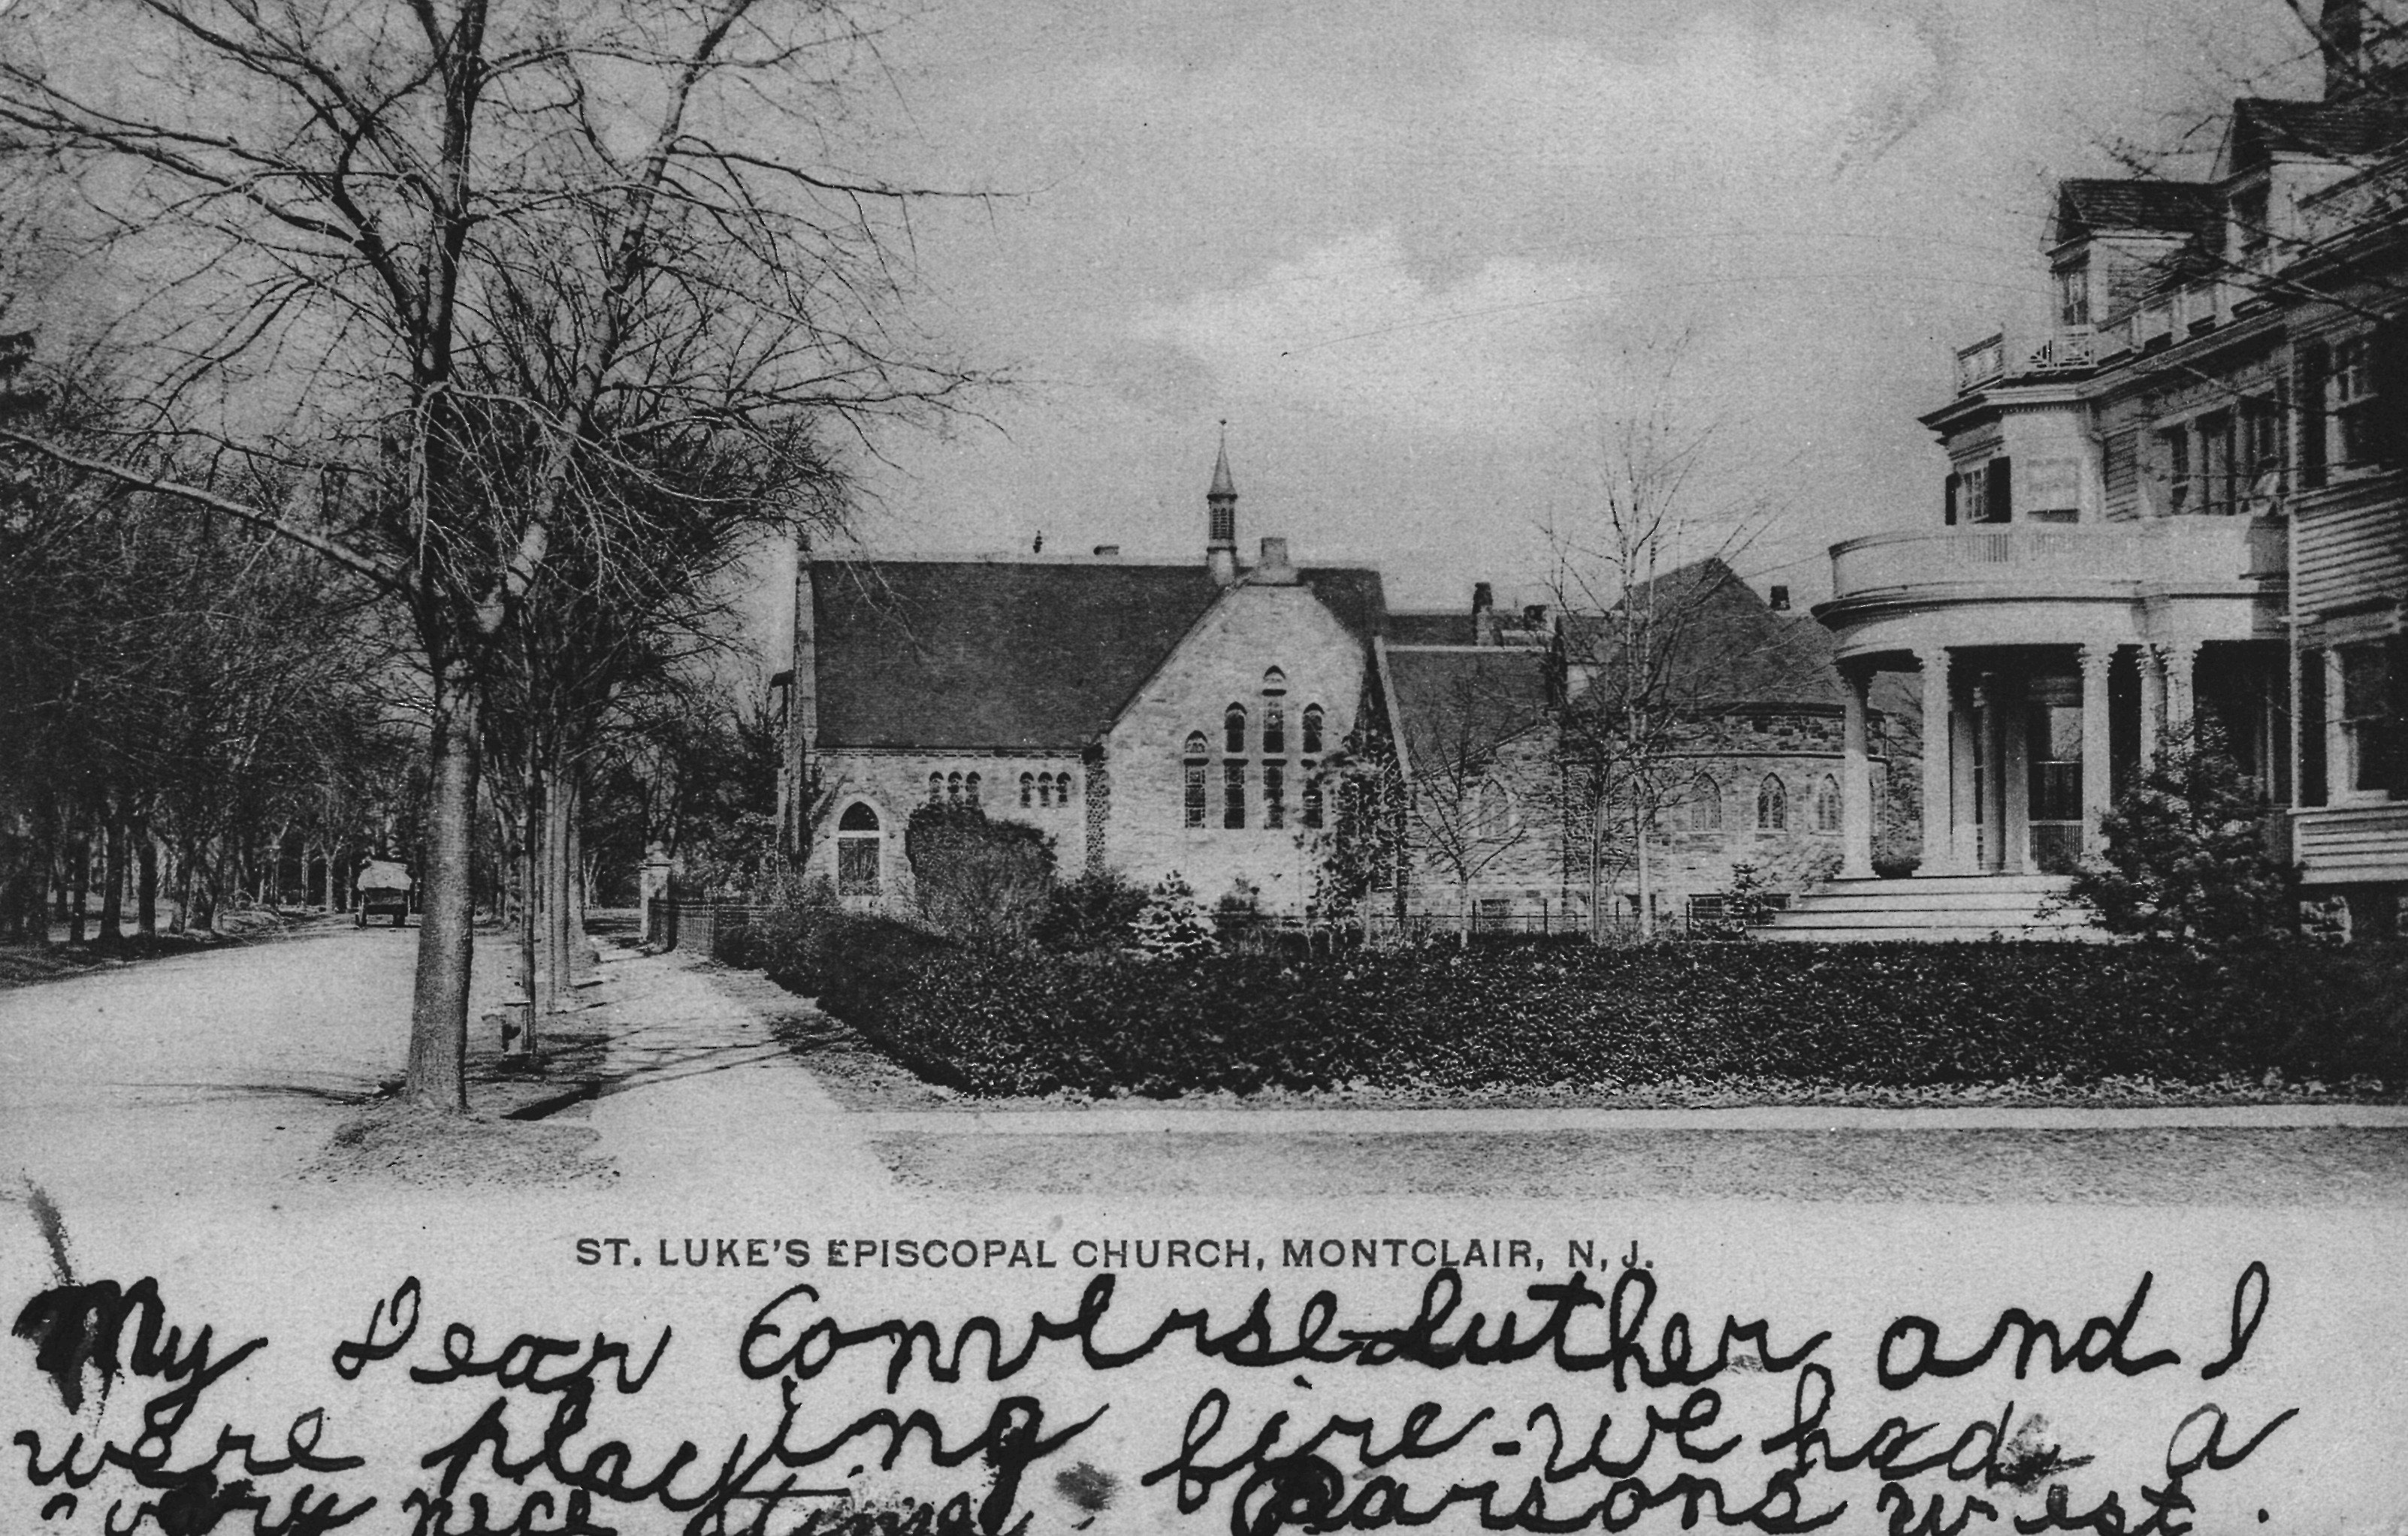 ST. LUKE'S EPISCOPAL CHURCH, MONTCLAIR, N, J.
My Dear Converse Luther and I
were playing fire - we had a
very nice time. Parsons west.